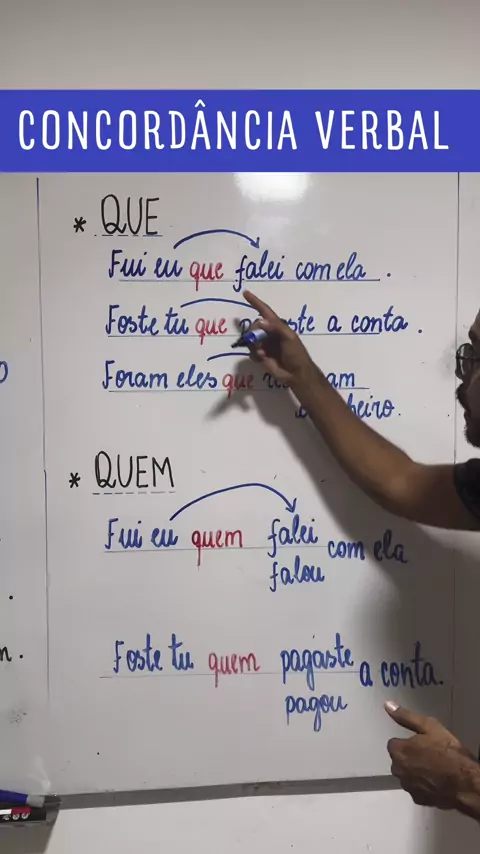 CONCORDÂNCIA VERBAL
* QUE
Fui eu que falei com ela.
Foste tu que a conta.
Foram eles que
* QUEM
Fui eu quem falei com ela
falou
Foste tu quem pagaste a conta.
pagou